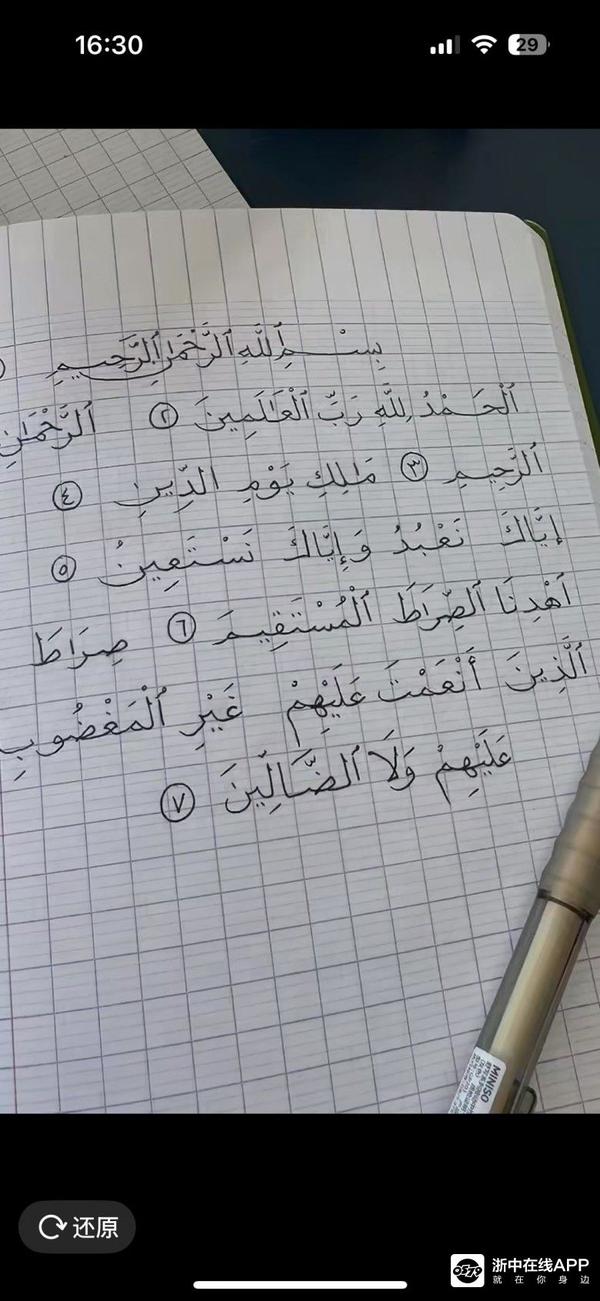 16:30
29
بِسْمِ ٱللَّهِ ٱلرَّحْمَٰنِ ٱلرَّحِيمِ
ٱلْحَمْدُ لِلَّهِ رَبِّ ٱلْعَالَمِينَ ٢ ٱلرَّحْمَٰنِ
ٱلرَّحِيمِ ٣ مَٰلِكِ يَوْمِ الدِّينِ ٤
إِيَّاكَ نَعْبُدُ وَإِيَّاكَ نَسْتَعِينُ ٥
ٱهْدِنَا ٱلصِّرَاطَ ٱلْمُسْتَقِيمَ ٦ صِرَاطَ
ٱلَّذِينَ أَنْعَمْتَ عَلَيْهِمْ غَيْرِ ٱلْمَغْضُوبِ
عَلَيْهِمْ وَلَا ٱلضَّالِّينَ ٧
MINISO
还原
浙中在线APP
就在你身边